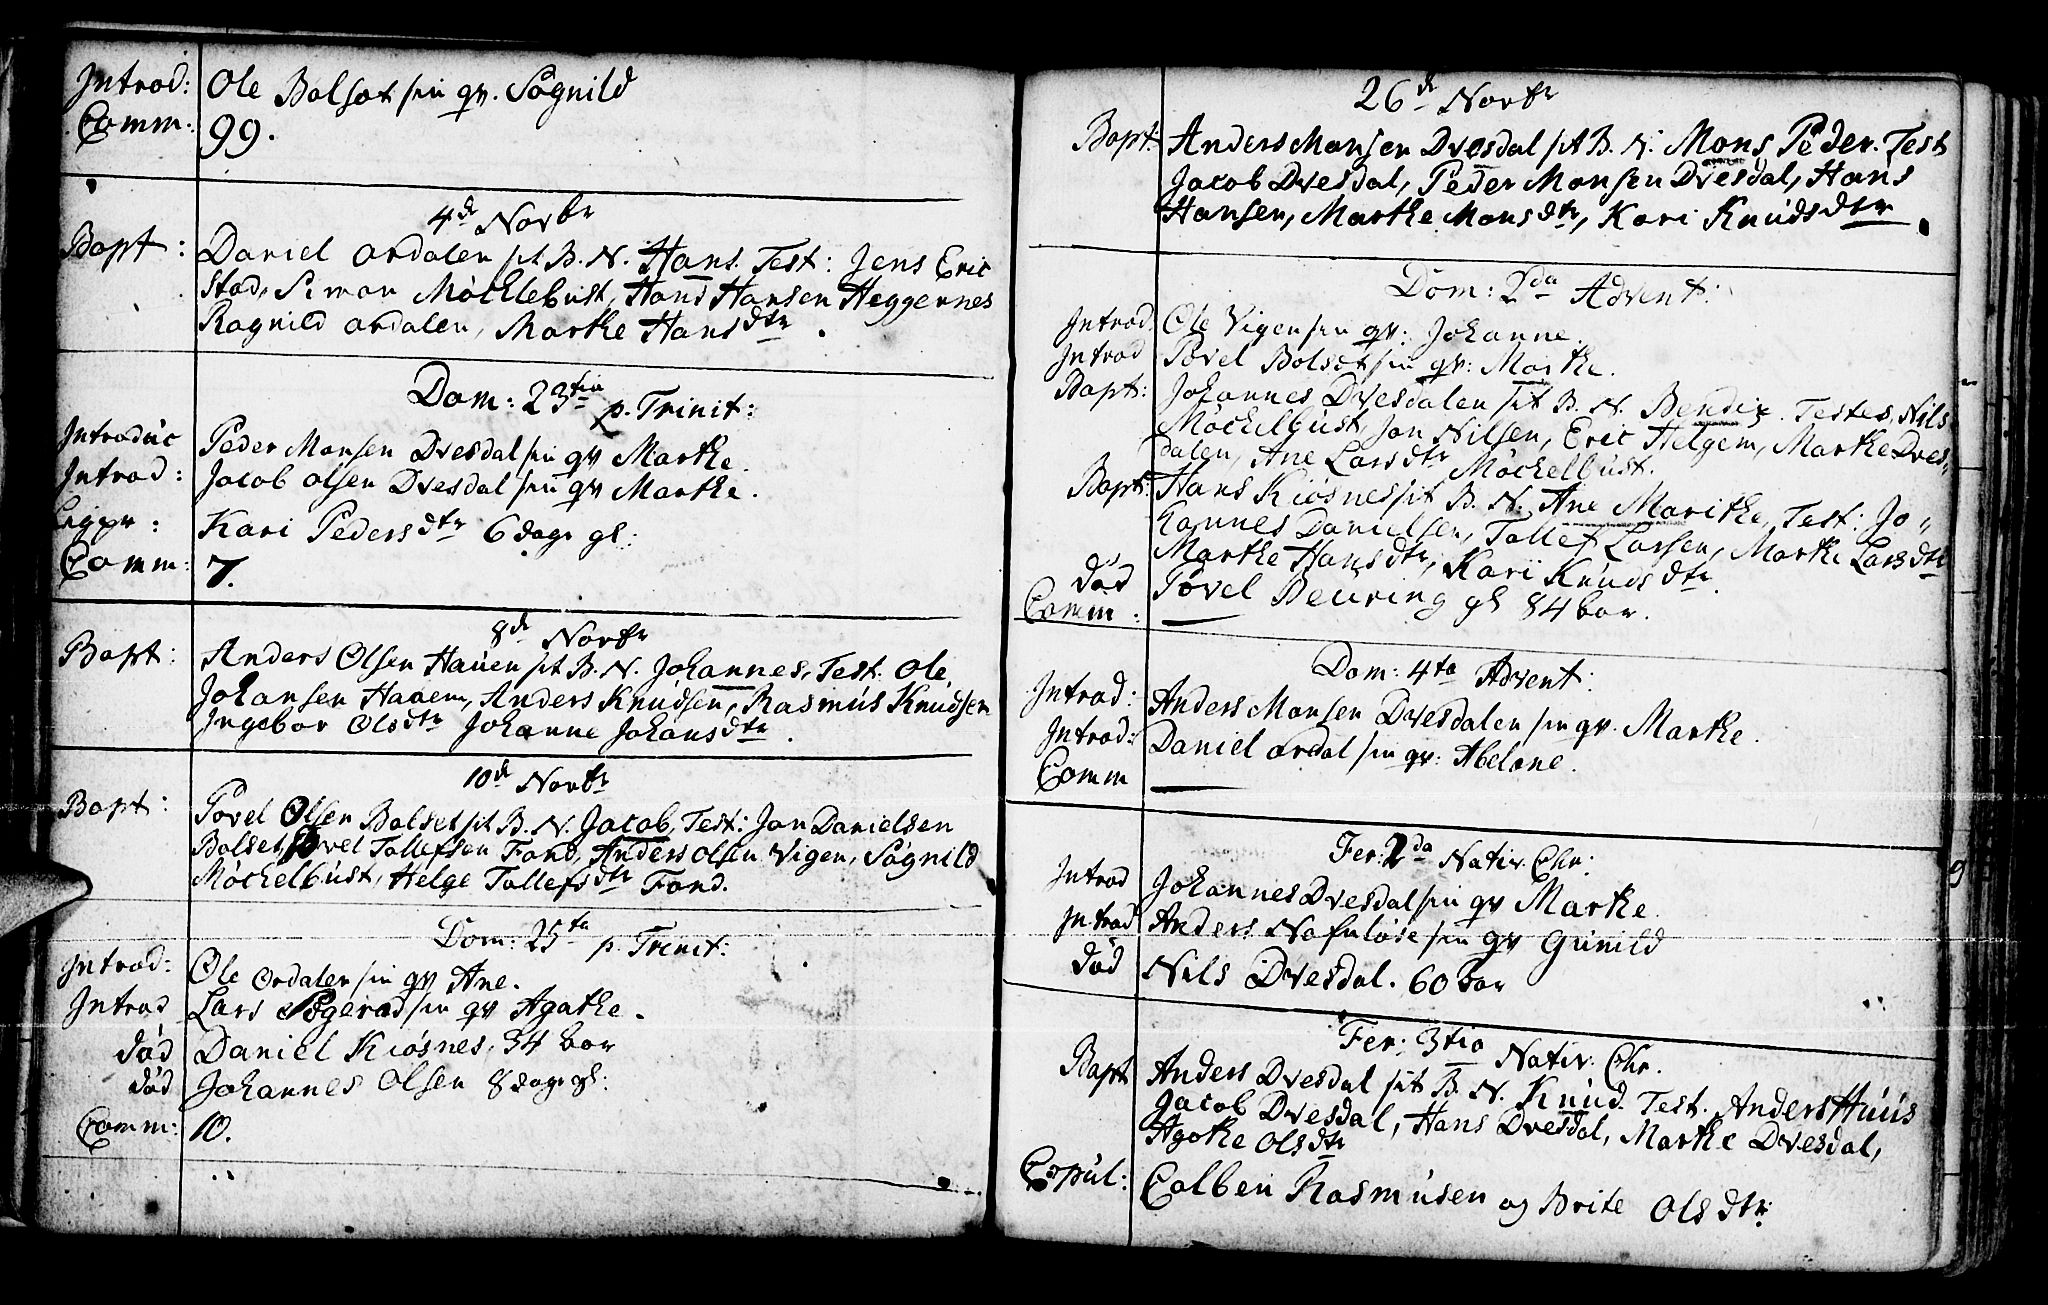 Introd: Ole Bolset sin qv. Sögnild
Comm: 99.
4de Novbr
Bapt: Daniel Ardalen sit B. N. Hans. Test: Jens Eric
stad, Simon Möcklebust, Hans Hansen Heggernes
Ragnild Ardalen, Marthe Hansdtr.
Dom: 23tia p. Trinit:
Introduc Peder Monsen Dvesdal sin qv Marthe.
Introd: Jacob Olsen Dvesdal sin qv Marthe.
Kari Pedersdtr 6 dage gl:
Comm: 7.
8de Novbr
Bapt: Anders Olsen Hauen sit B. N. Johannes, Test: Ole
Johansen Hauem, Anders Knudsen, Rasmus Knudsen
Ingebor Olsdtr Johanne Johansdtr.
10de Novbr
Bapt: Povel Olsen Bolset sit B. N. Jacob, Test: Jon Danielsen
Bolset, Povel Tollefsen Fond, Anders Olsen Vigen, Sögnild
Möckelbust, Helge Tollefsdtr Fond.
Dom: 25ta p. Trinit:
Introd: Ole Ordalen sin qv Ane.
Introd Lars Sögerad sin qv Agathe.
död Daniel Kiösnes, 34 bar
död Johannes Olsen 8 dage gl:
Comm: 10.
26de Novbr
Bapt: Anders Monsen Dvesdal sit B. N: Mons Peder. Test
Jacob Dvesdal, Peder Monsen Dvesdal, Hans
Hansen, Marthe Monsdtr, Kari Knudsdtr.
Dom: 2da Advent:
Introd. Ole Vigen sin qv: Johanne.
Introd Povel Bolset sin qv: Marthe.
Bapt: Johannes Dvesdalen sit B. N. Bendix. Testes, Nils
Möckelbust, Jon Nilsen, Eric Helgem, Marthe Dves„
dalen, Ane Larsdtr Möckelbust.
Bapt: Hans Kiösnes sit B. N. Ane Marithe, Test: Jo„
hannes Danielsen, Tollef Larsen, Marthe Larsdtr
Marthe Hansdtr, Kari Knudsdtr.
död Povel Beuring gl 84 bar.
Comm: —
Dom: 4ta Advent:
Introd: Anders Monsen Dvesdalen sin qv. Marthe.
Introd: Daniel Ardal sin qv: Abelone.
Comm —
Fer: 2da Nativ: Chr:
Introd Johannes Dvesdal sin qv Marthe.
Introd Anders Nofnlöse sin qv Gunild
död Nils Dvesdal. 60 bar
Fer: 3tia Nativ: Chr.
Bapt Anders Dvesdal sit B. N. Knud. Test. Anders Huus
Jacob Dvesdal, Hans Dvesdal, Marthe Dvesdal,
Agathe Olsdtr
Copul: Colben Rasmusen og Brite Olsdtr: